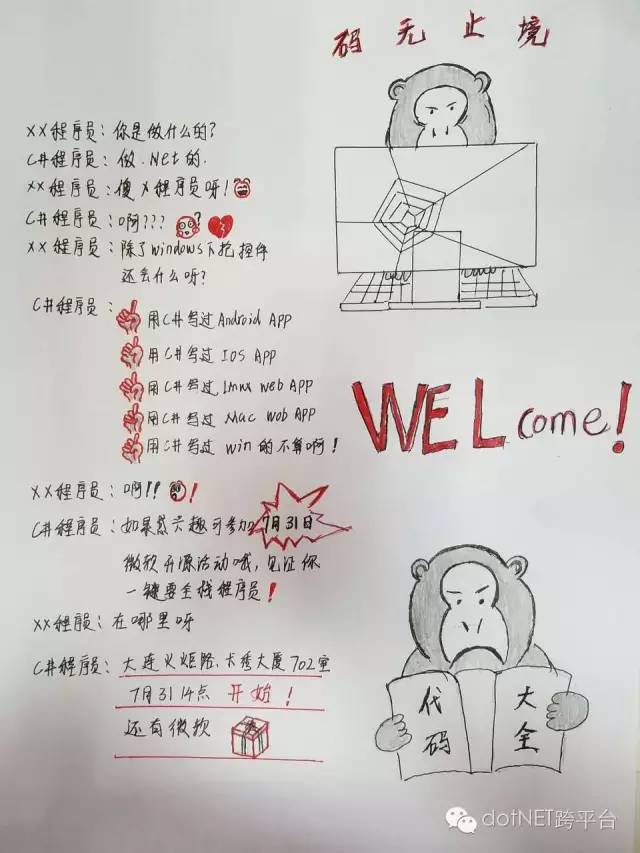 码无止境
XX程序员：你是做什么的？
C#程序员：做.Net的.
XX程序员：傻X程序员呀！
C#程序员：啊???
XX程序员：除了windows下拖控件
还会什么呀？
C#程序员：
用C#写过Android APP
用C#写过IOS APP
用C#写过Linux web APP
用C#写过Mac Web APP
用C#写过win的不算啊！
WELcome!
XX程序员：啊!!!
C#程序员：如果感兴趣可参加7月31日
微软开源活动哦，见证你
一键变全栈程序员！
XX程序员：在哪里呀
C#程序员：大连火炬路.卡秀大厦702室
7月31 14点 开始！
还有微软
代码
大全
dotNET跨平台